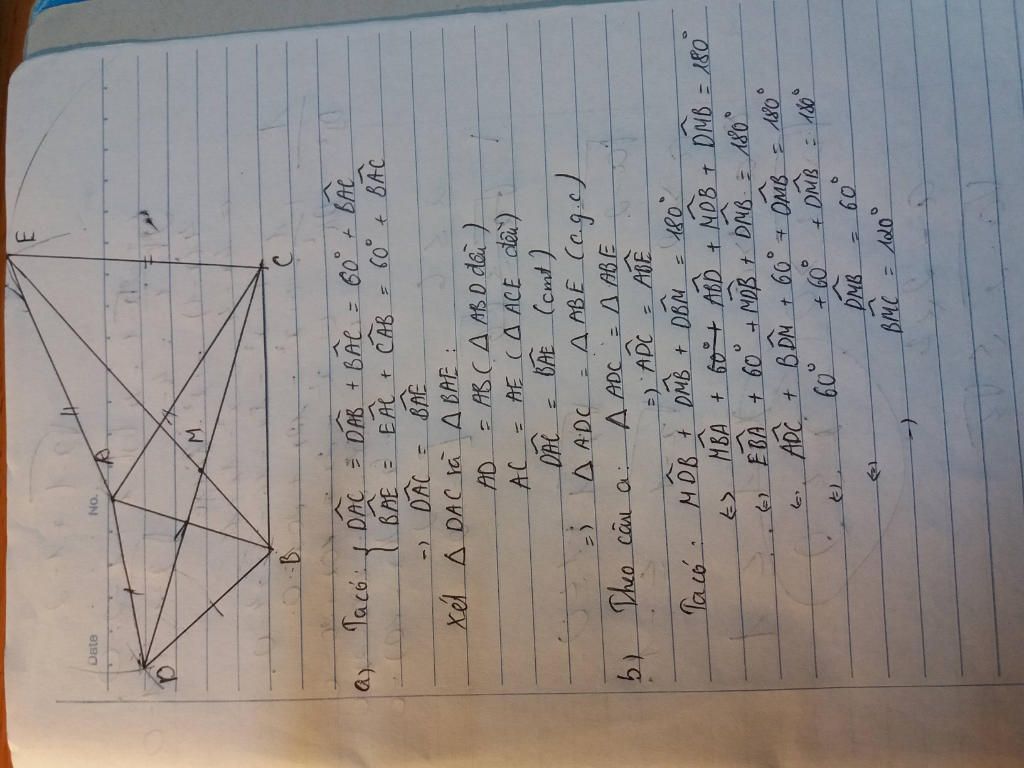 Date No.
E
A
D
M
B
C
a) Ta có: { DÂC = DÂB + BÂC = 60° + BÂC
BÂE = EÂC + CÂB = 60° + BÂC
=) DÂC = BÂE
Xét Δ DAC và Δ BAE:
AD = AB (Δ ABD đều)
AC = AE (Δ ACE đều)
DÂC = BÂE (cmt)
=) Δ ADC = Δ ABE (c.g.c)
b) Theo câu a: Δ ADC = Δ ABE
=) AD̂C = AB̂E
Ta có: MD̂B + DM̂B + DB̂M = 180°
(=) MB̂A + 60° + AB̂D + MD̂B + DM̂B = 180°
(=) EB̂A + 60° + MD̂B + DM̂B = 180°
(=) AD̂C + BD̂M + 60° + DM̂B = 180°
(=) 60° + 60° + DM̂B = 180°
(=) DM̂B = 60°
=) BM̂C = 120°